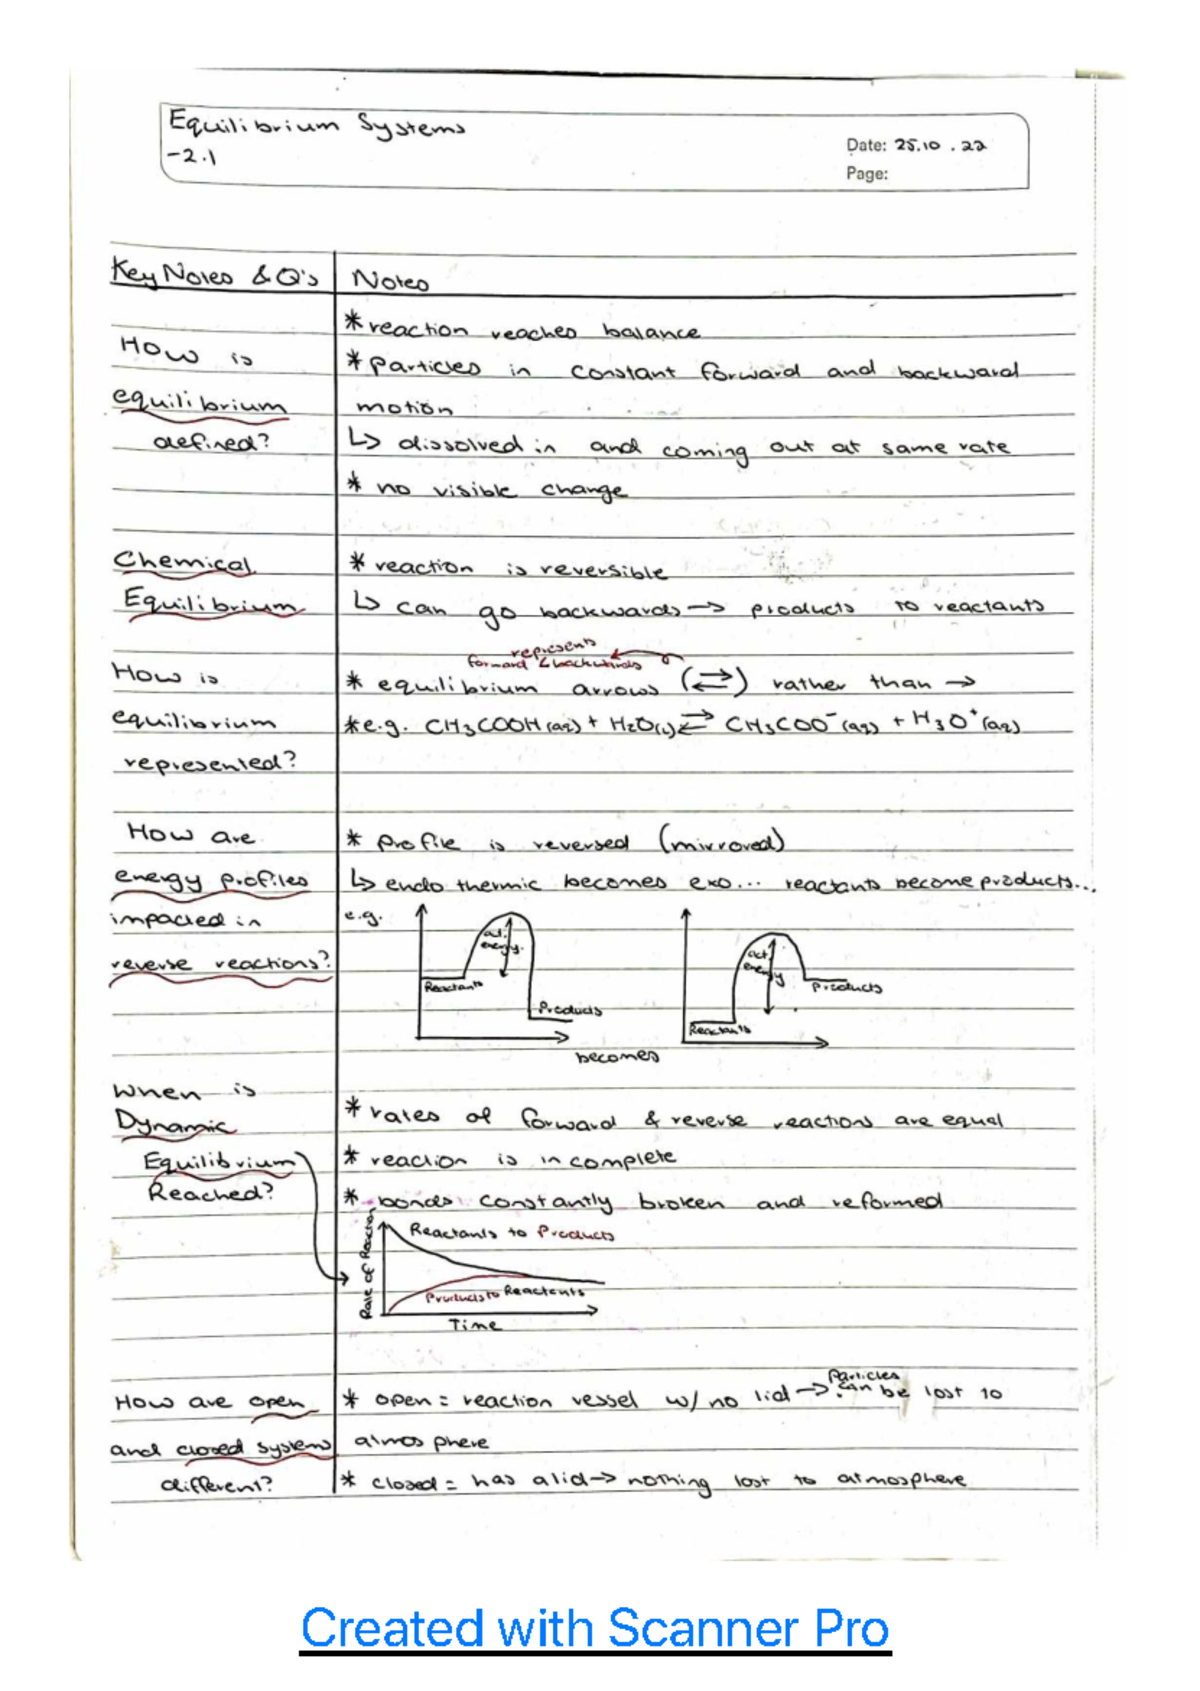 Equilibrium Systems
-2.1
Date: 25.10.22
Page:
Key Notes & Q's
Notes
How is
equilibrium
defined?
* reaction reaches balance
* particles in constant forward and backward
motion
↳ dissolved in and coming out at same rate
* no visible change
Chemical
Equilibrium
* reaction is reversible
↳ can go backwards → products to reactants
How is
equilibrium
represented?
represents
forward & backwards
* equilibrium arrows (⇌) rather than →
* e.g. CH₃COOH(aq) + H₂O(l) ⇌ CH₃COO⁻(aq) + H₃O⁺(aq)
How are
energy profiles
impacted in
reverse reactions?
* profile is reversed (mirrored)
↳ endothermic becomes exo... reactants become products...
e.g.
act.
energy.
Reactants
Products
becomes
act.
energy
Products
Reactants
When is
Dynamic
Equilibrium
Reached?
* rates of forward & reverse reactions are equal
* reaction is incomplete
* bonds constantly broken and reformed
Rate of Reaction
Reactants to Products
Products to Reactants
Time
How are open
and closed systems
different?
* open = reaction vessel w/ no lid → Particles can be lost to
atmosphere
* closed = has a lid → nothing lost to atmosphere
Created with Scanner Pro